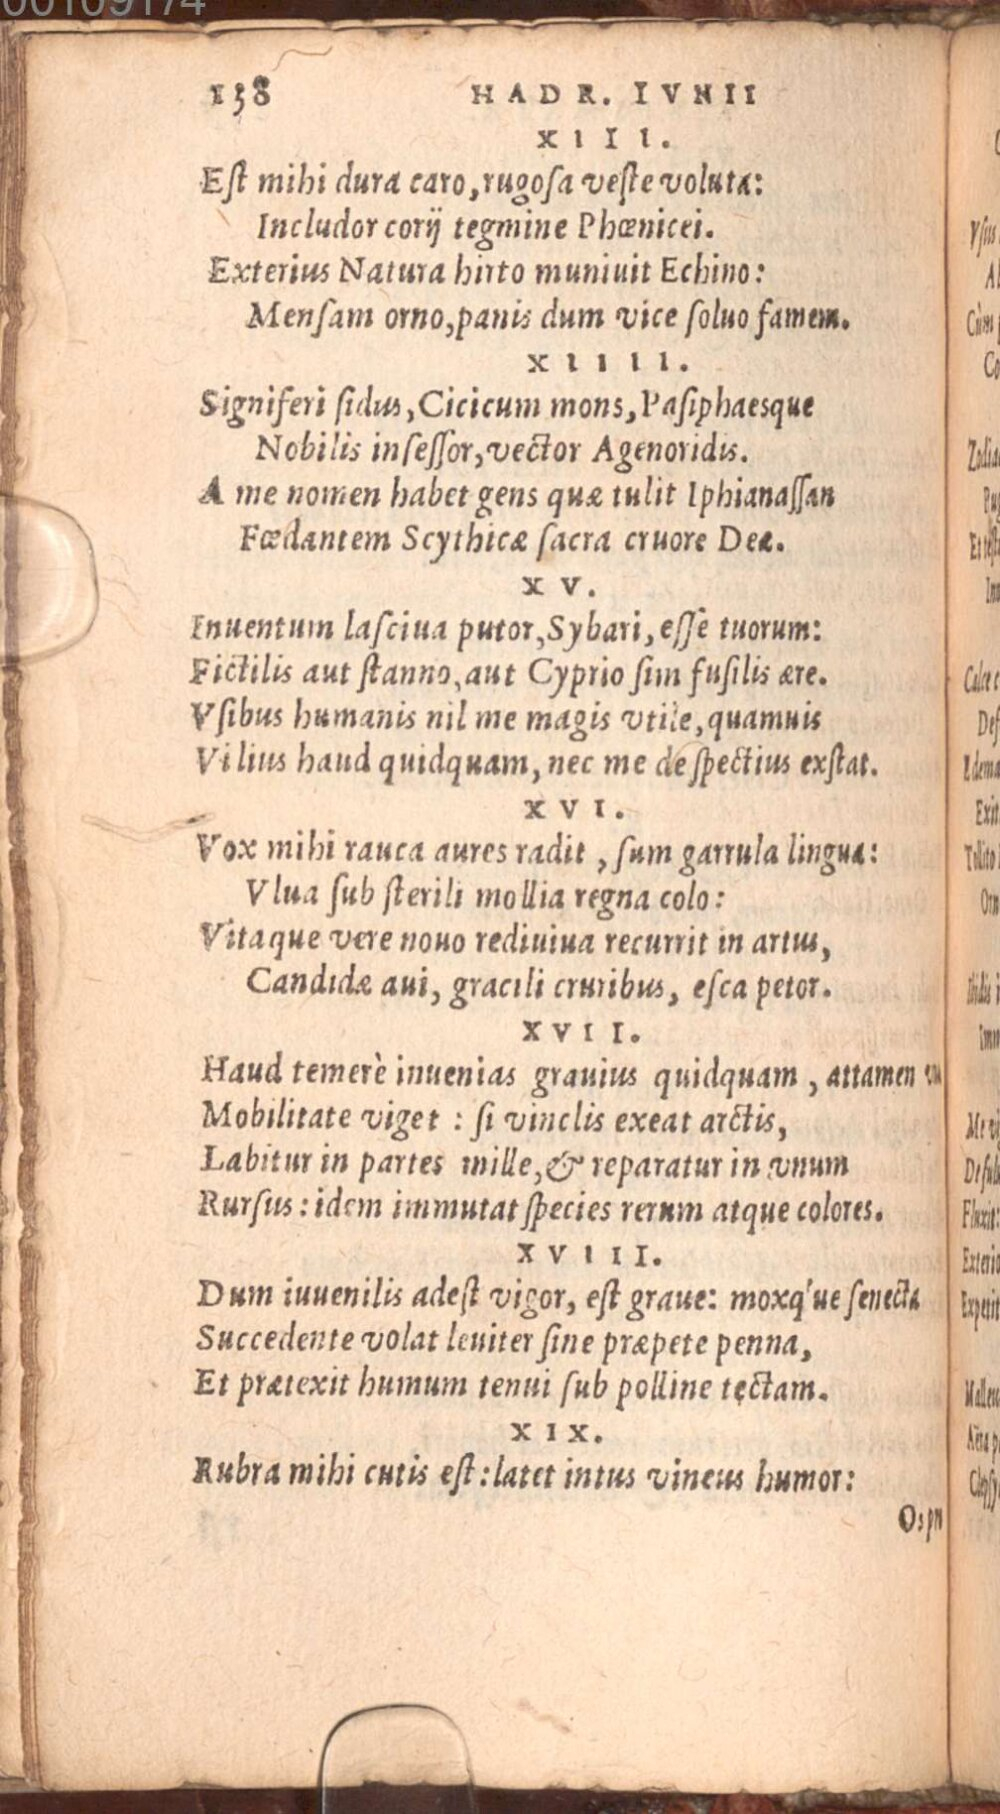 00109174
138 HADR. IVNII
XIII.
Est mihi dura caro, rugosa veste voluta:
Includor corij tegmine Phœnicei.
Exterius Natura hirto muniuit Echino:
Mensam orno, panis dum vice soluo famem.
XIIII.
Signiferi sidus, Cicicum mons, Pasiphaesque
Nobilis insessor, vector Agenoridis.
A me nomen habet gens quæ tulit Iphianassan
Fœdantem Scythicæ sacra cruore Deæ.
XV.
Inuentum lasciua putor, Sybari, esse tuorum:
Fictilis aut stanno, aut Cyprio sim fusilis ære.
Vsibus humanis nil me magis vtile, quamuis
Vilius haud quidquam, nec me despectius exstat.
XVI.
Vox mihi rauca aures radit, sum garrula lingua:
Vlua sub sterili mollia regna colo:
Vitaque vere nouo rediuiua recurrit in artus,
Candidæ aui, gracili cruribus, esca petor.
XVII.
Haud temerè inuenias grauius quidquam, attamen
Mobilitate viget: si vinclis exeat arctis,
Labitur in partes mille, & reparatur in vnum
Rursus: idem immutat species rerum atque colores.
XVIII.
Dum iuuenilis adest vigor, est graue: moxq'ue senecta
Succedente volat leuiter sine præpete penna,
Et prætexit humum tenui sub polline tectam.
XIX.
Rubra mihi cutis est: latet intus vineus humor: